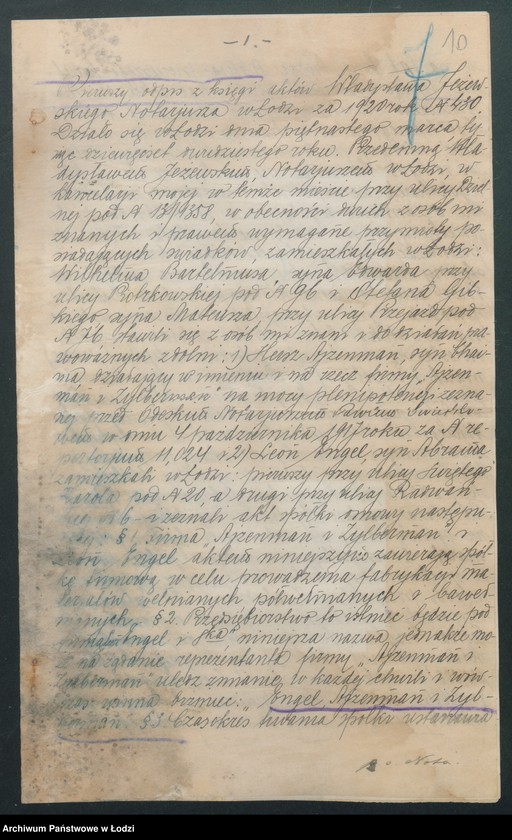 -1.-
10
Pierwszy odpis z księgi aktów Władysława Jeżew-
skiego Notarjusza w Łodzi za 1920 rok № 430.
Działo się w Łodzi dnia piętnastego marca ty-
siąc dziewięćset dwudziestego roku. Przedemną Wła-
dysławem Jeżewskim, Notarjuszem w Łodzi, w
Kancelarji mojej w temże mieście przy ulicy Dziel-
nej pod № 13/1358, w obecności dwóch z osób mi
znanych i prawem wymagane przymioty po-
siadających świadków, zamieszkałych w Łodzi:
Wilhelma Bartelmusa, syna Edwarda przy
ulicy Piotrkowskiej pod № 96 i Stefana Gib-
kiego syna Mateusza, przy ulicy Przejazd pod
№ 76 stawili się z osób mi znani i do działań pra-
woważnych zdolni: 1) Hersz Ajzenman, syn
działający w imieniu i na rzecz firmy "Ajzen-
man i Zylberman" na mocy plenipotencji zezna-
nej przed Odeskim Notarjuszem
w dniu 4 października 1917 roku za № re-
pertorjum 11,024 i 2) Leon Engel, syn Abrama,
zamieszkali w Łodzi: pierwszy przy ulicy Świętego
Karola pod № 20, a drugi przy ulicy Radwań-
i zeznali akt spółki osnowy następu-
§1. Firma "Ajzenman i Zylberman" i
Leon Engel aktem niniejszym zawierają spół-
kę firmową w celu prowadzenia fabrykacji ma-
terjałów wełnianych półwełnianych i baweł-
nianych. §2. Przedsiębiorstwo to istnieć będzie pod
firmą "Engel i S-ka" niniejsza nazwa jednakże mo-
że na żądanie reprezentanta firmy "Ajzenman i
Zylberman" uledz zmianie w każdej chwili i wów-
czas winna brzmieć: "Engel, Ajzenman i Zyl-
berman". §3. Czasokres trwania spółki ustanawia
Archiwum Państwowe w Łodzi